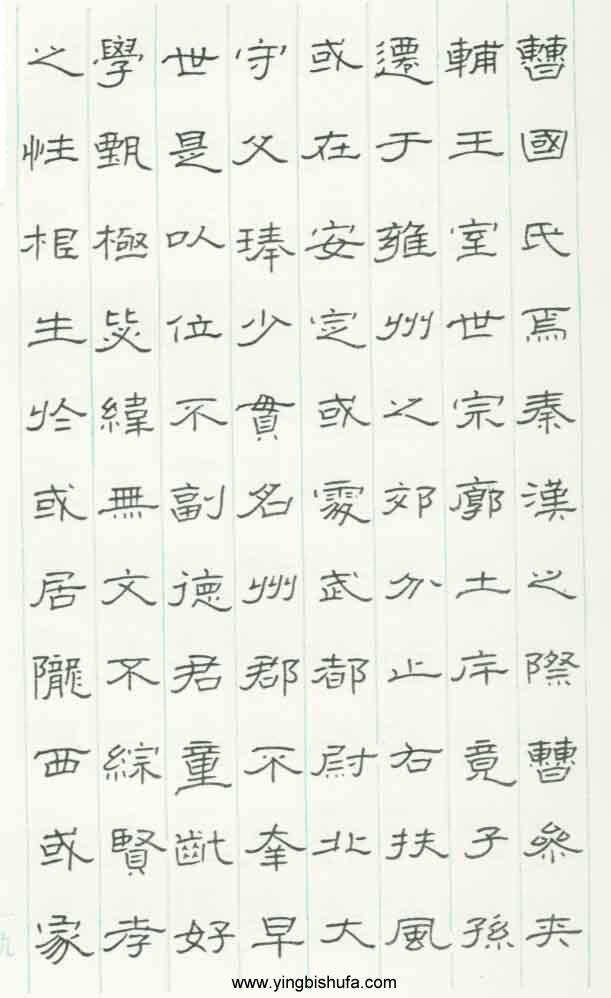 曹國氏焉秦漢之際曹參夾
輔王室世宗廓土斥竟子孫
遷于雍州之郊分止右扶風
或在安定或處武都尉北大
守父琫少貫名州郡不幸早
世是以位不副德君童齔好
學甄極毖緯無文不綜賢孝
之性根生於或居隴西或家
www.yingbishufa.com